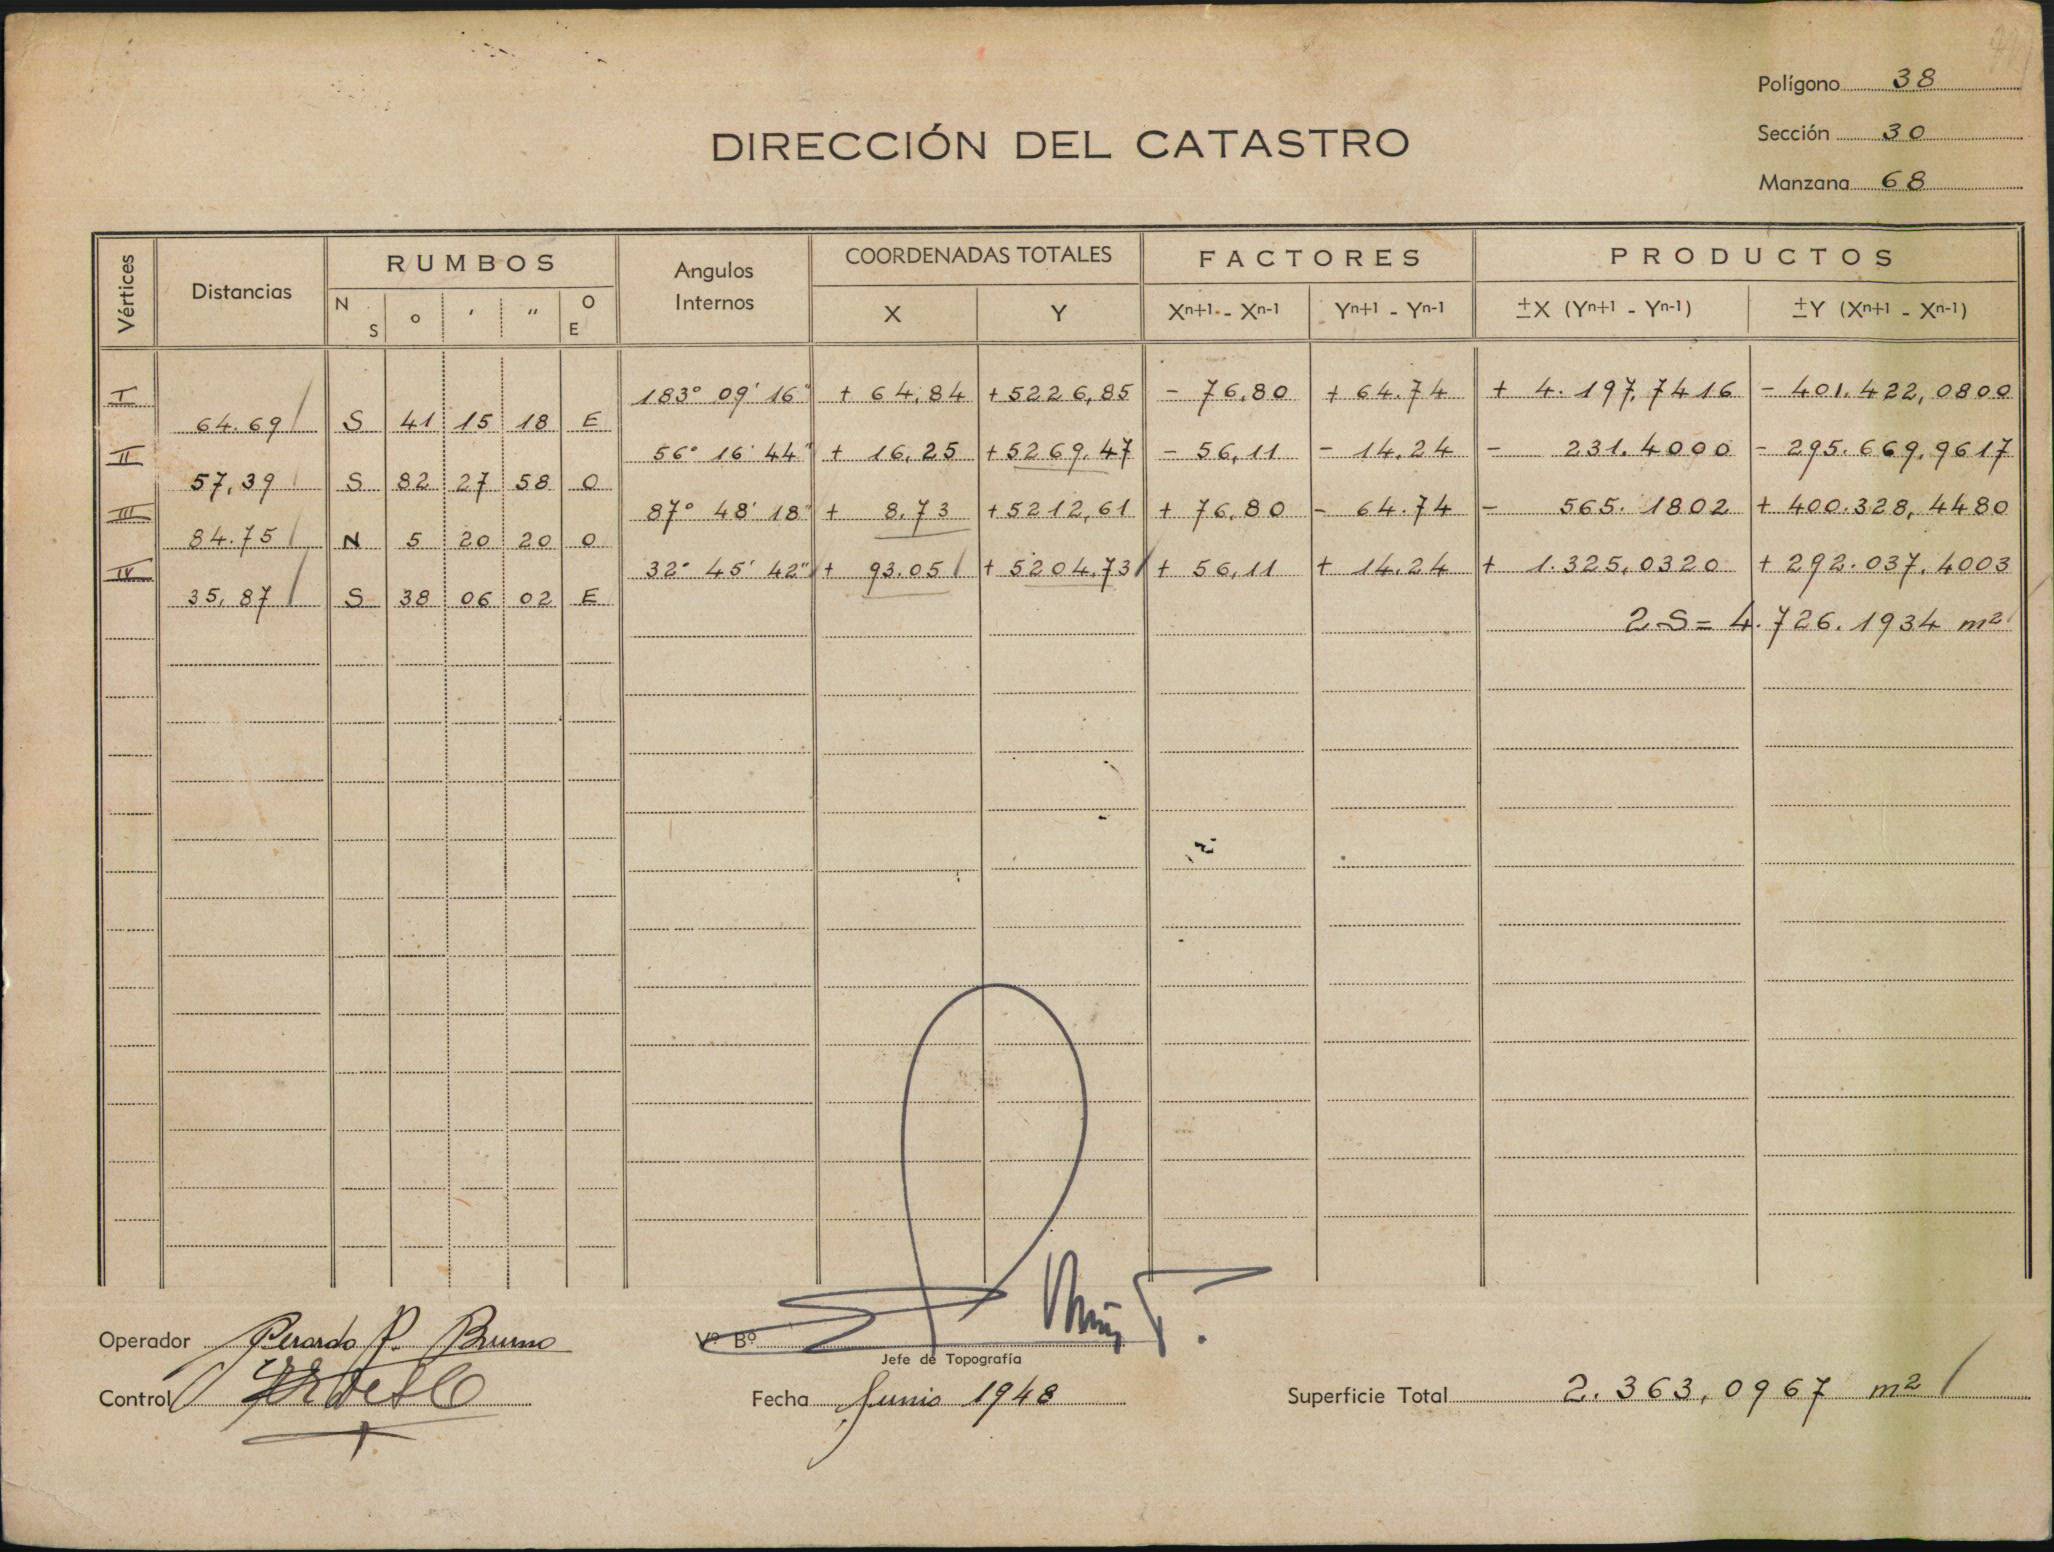 Polígono 38
Sección 30
Manzana 68
DIRECCIÓN DEL CATASTRO
Vértices Distancias RUMBOS Angulos Internos COORDENADAS TOTALES FACTORES PRODUCTOS
N S o ' " O E X Y Xn+1 - Xn-1 Yn+1 - Yn-1 ±X (Yn+1 - Yn-1) ±Y (Xn+1 - Xn-1)
I 183° 09' 16" + 64,84 +5226,85 - 76,80 + 64.74 + 4.197,7416 - 401.422,0800
64.69 S 41 15 18 E
II 56° 16' 44" + 16,25 +5269.47 - 56,11 - 14.24 - 231.4000 - 295.669,9617
57,39 S 82 27 58 O
III 87° 48' 18" + 8.73 +5212,61 + 76,80 - 64.74 - 565.1802 + 400.328,4480
84.75 N 5 20 20 O
IV 32° 45' 42" + 93.05 + 5204,73 + 56,11 + 14.24 + 1.325,0320 + 292.037,4003
35,87 S 38 06 02 E
2 S = 4.726.1934 m2
Operador Gerardo P. Bruno
Vº Bº
Jefe de Topografía
Control
Fecha Junio 1948
Superficie Total 2.363,0967 m2